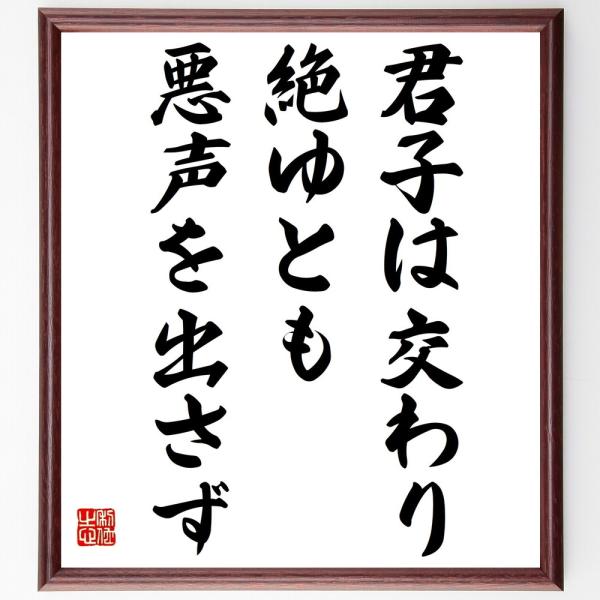 君子は交わり
絶ゆとも
悪声を出さず